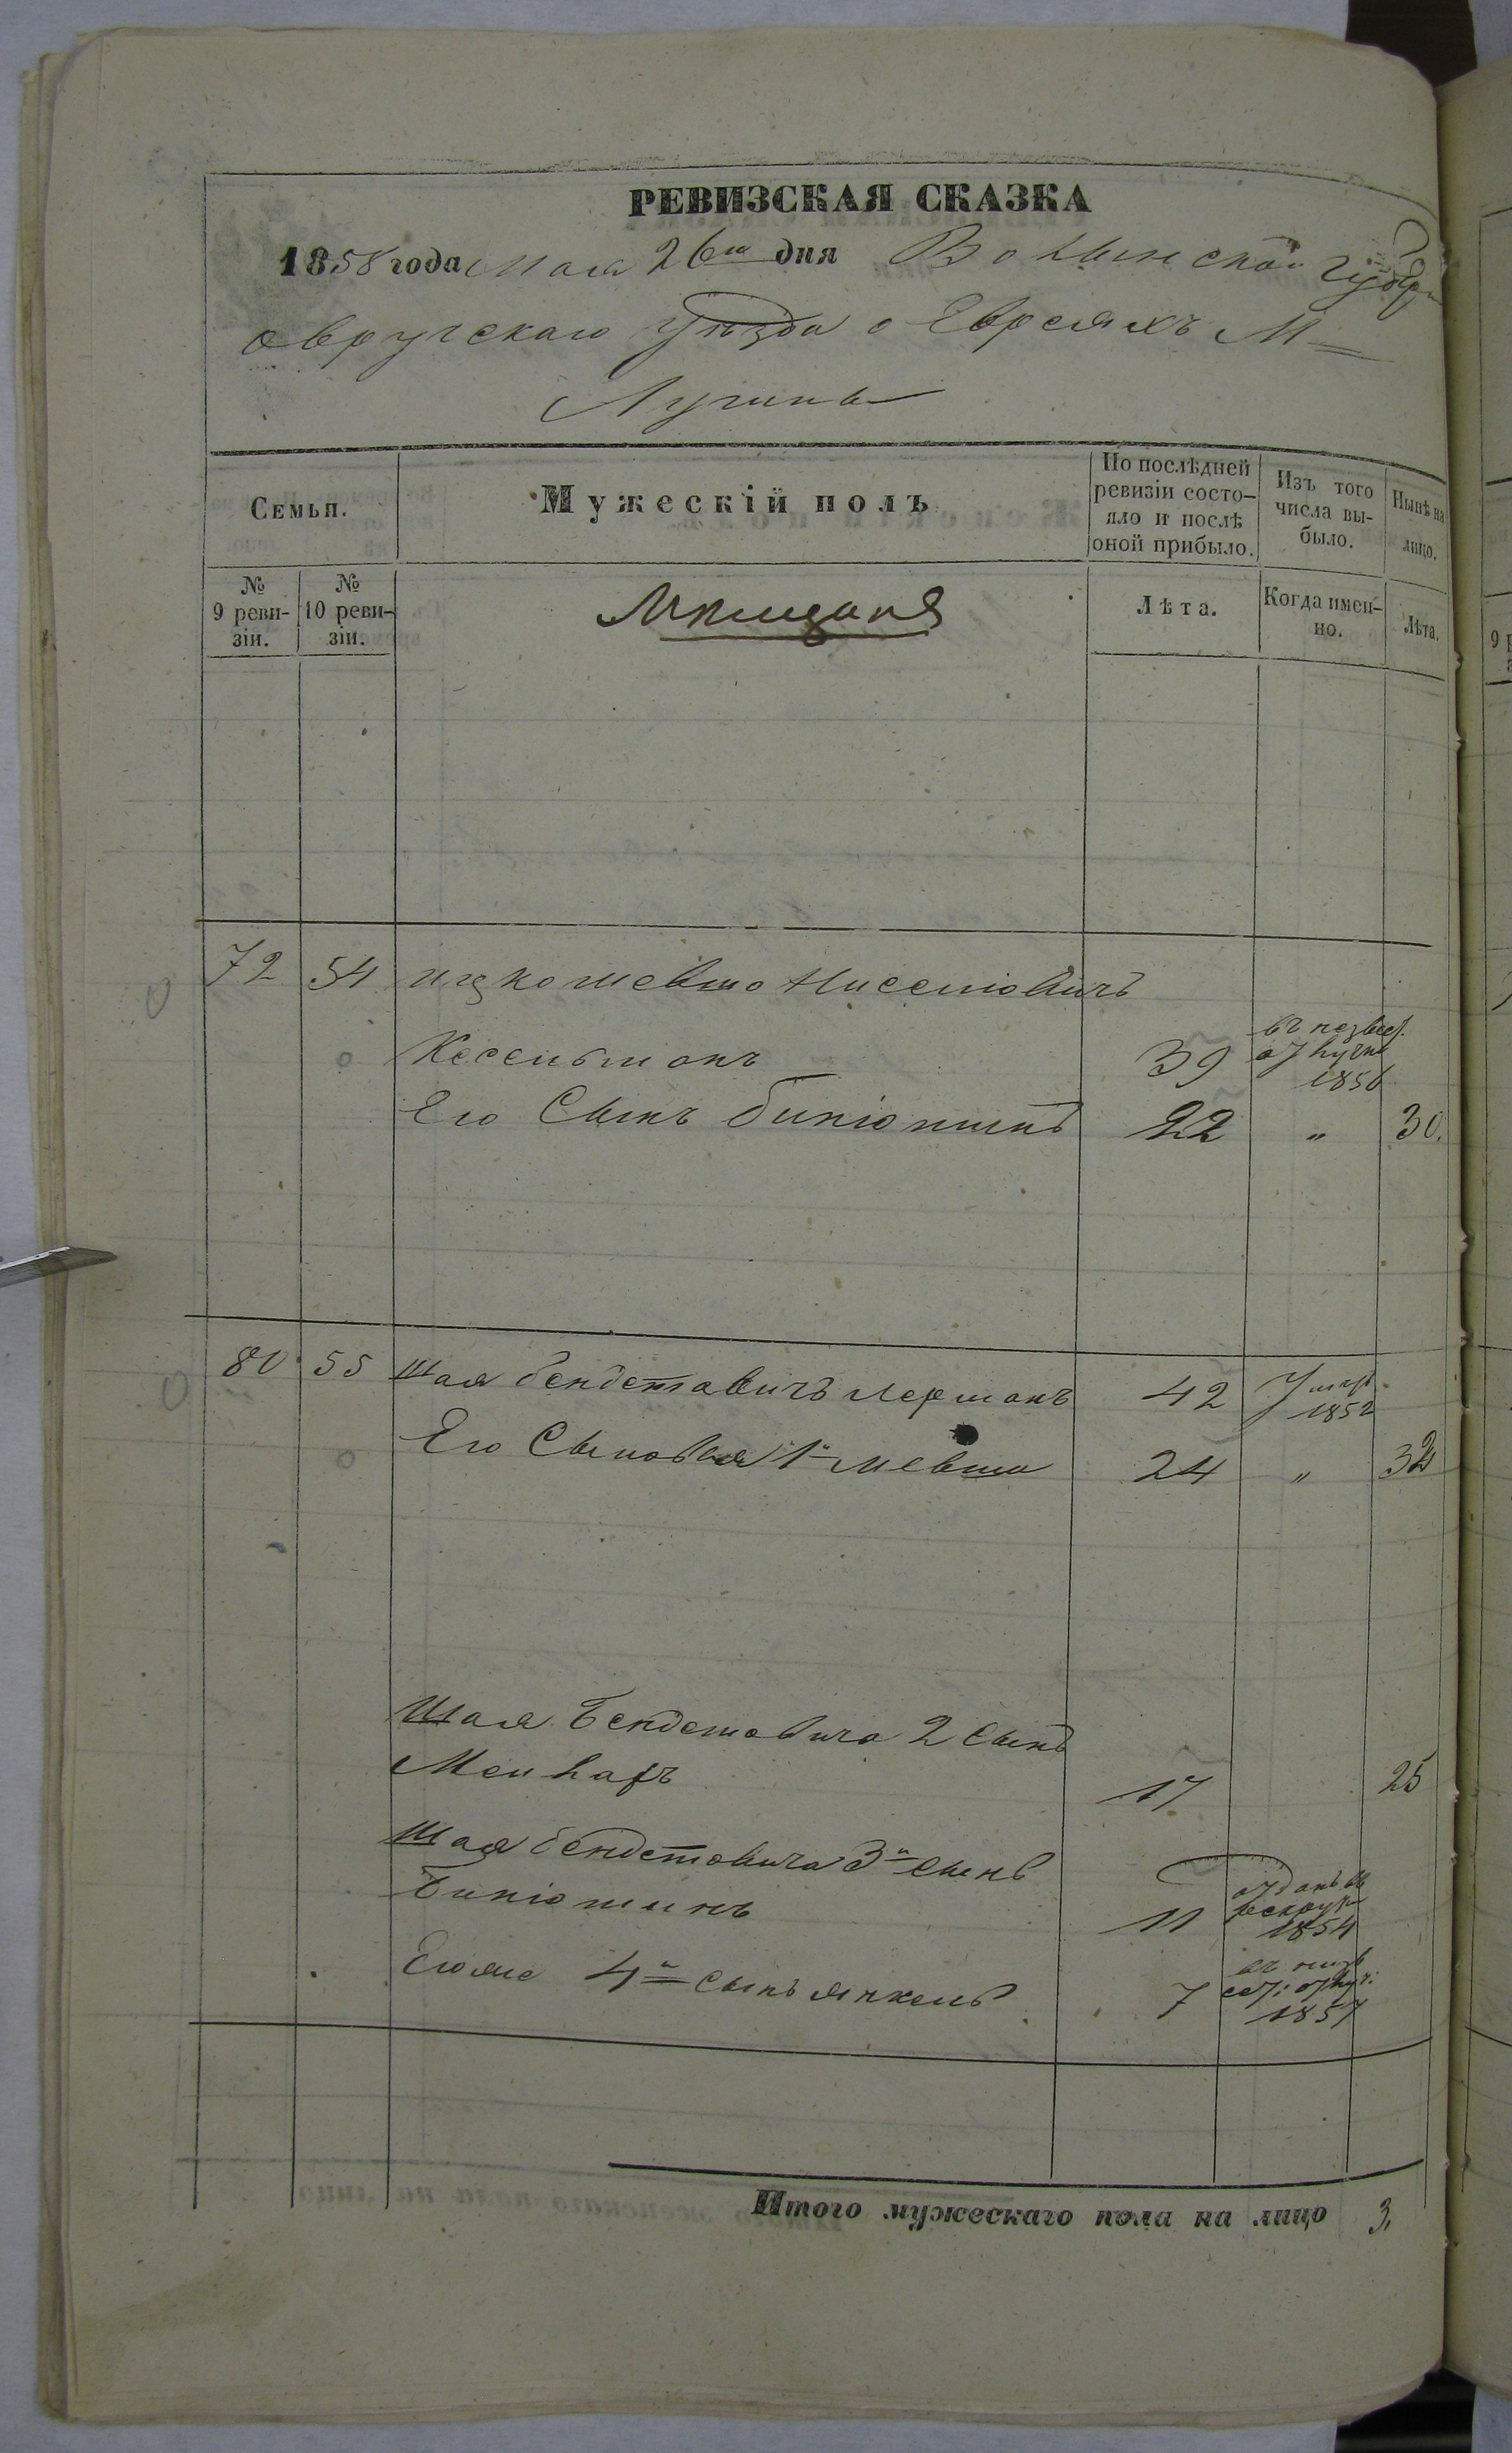 РЕВИЗСКАЯ СКАЗКА
1858 года Мая 26го дня Волынской губер
овручскаго уѣзда о Евреяхъ М
Лугинъ
Семьи.
Мужескій полъ
По послѣдней ревизіи состо-
яло и послѣ оной прибыло.
Изъ того числа вы-
было.
Нынѣ на лицо.
№ 9 реви-
зіи.
№ 10 реви-
зіи.
Мѣщаня
Лѣта.
Когда имен-
но.
Лѣта.
72 54 ицко Нисеніовичъ
39 1856
Его Сынъ биніоминъ 22 " 30.
80 55 Шая бендетовичъ лерманъ 42 1852
Его Сыновья 1й 24 " 32
Шая Бендетовича 2 Сынъ
17 25
Шая бендетовича 3й сынъ
Биніоминъ 11 отданъ въ рекрут 1854
Егоже 4й сынъ янкель 7 1857
Итого мужескаго пола на лицо 3,